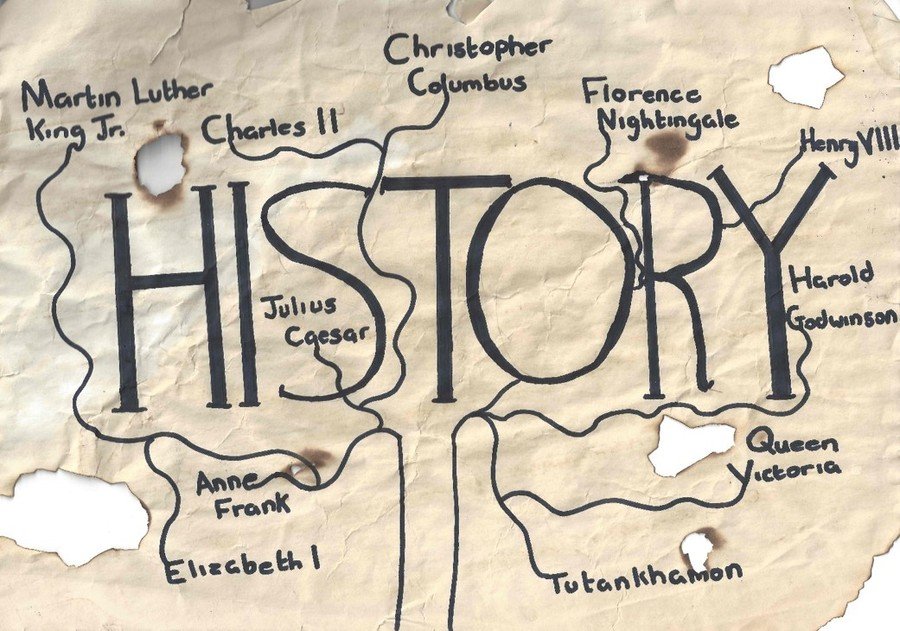 Christopher
Columbus
Martin Luther
King Jr.
Charles II
Florence
Nightingale
Henry VIII
HISTORY
Julius
Caesar
Harold
Godwinson
Anne
Frank
Queen
Victoria
Elizabeth I
Tutankhamon